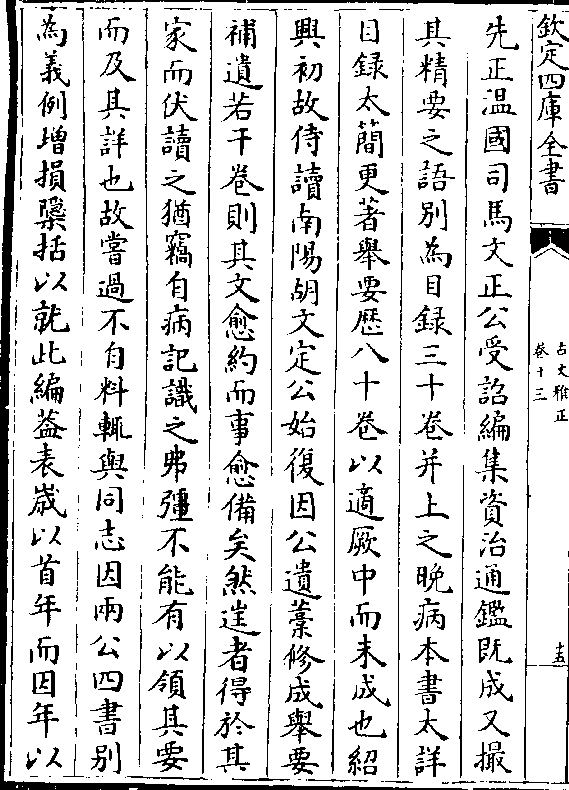 欽定四庫全書
古文雅正
卷十三
十五
先正温國司馬文正公受詔編集資治通鑑既成又撮
其精要之語别為目録三十卷并上之晚病本書太詳
目録太簡更著舉要歴八十卷以適厥中而未成也紹
興初故侍讀南陽胡文定公始復因公遺藁修成舉要
補遺若干卷則其文愈約而事愈備矣然遑者得於其
家而伏讀之猶竊自病記識之弗彊不能有以領其要
而及其詳也故嘗過不自料輙與同志因兩公四書别
為義例增損檃括以就此編葢表嵗以首年而因年以